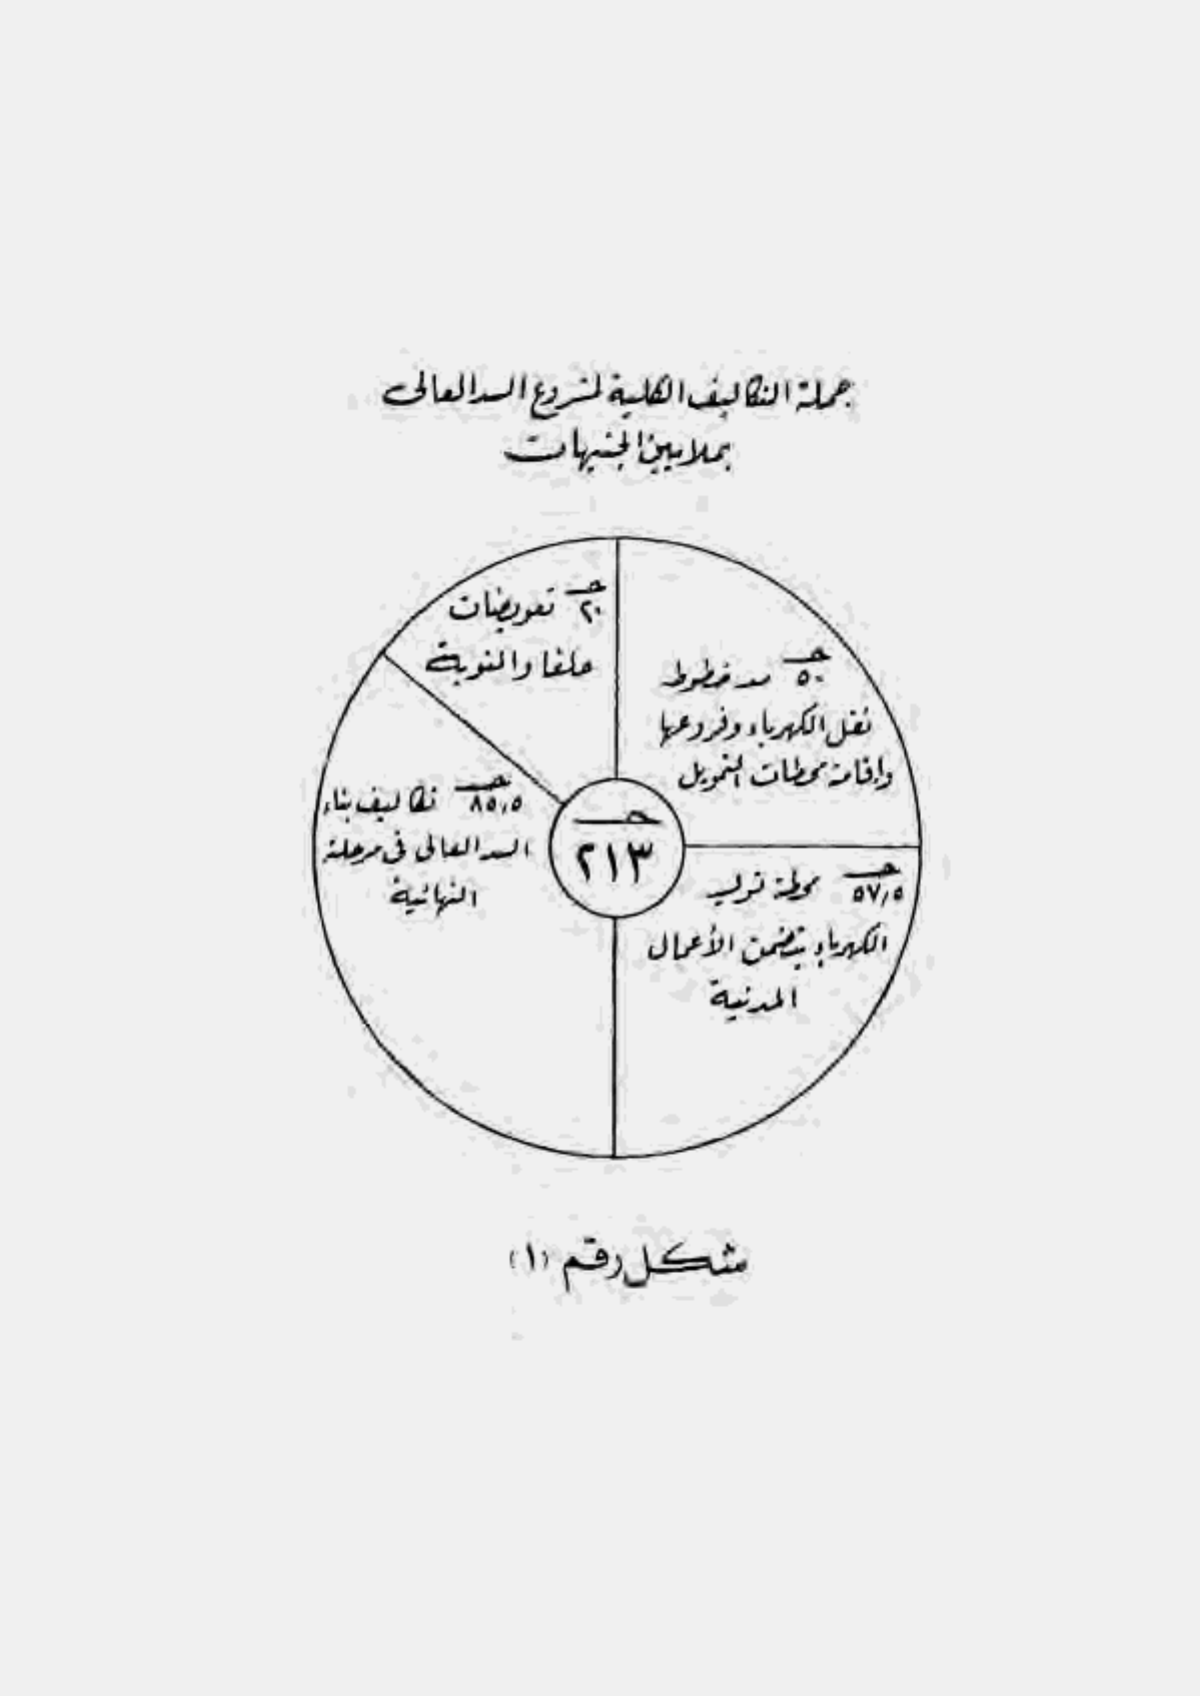 جملة التكاليف الكلية لمشروع السد العالى
بملايين الجنيهات
جـ
٢٠ تعويضات
حلفا والنوبة
جـ
٥٠ مد خطوط
نقل الكهرباء وفروعها
وإقامة محطات التمويل
جـ
٨٥,٥ تكاليف بناء
السد العالى فى مرحلته
النهائية
جـ
٢١٣
جـ
٥٧,٥ محطة توليد
الكهرباء يتضمن الأعمال
المدنية
شكل رقم (١)